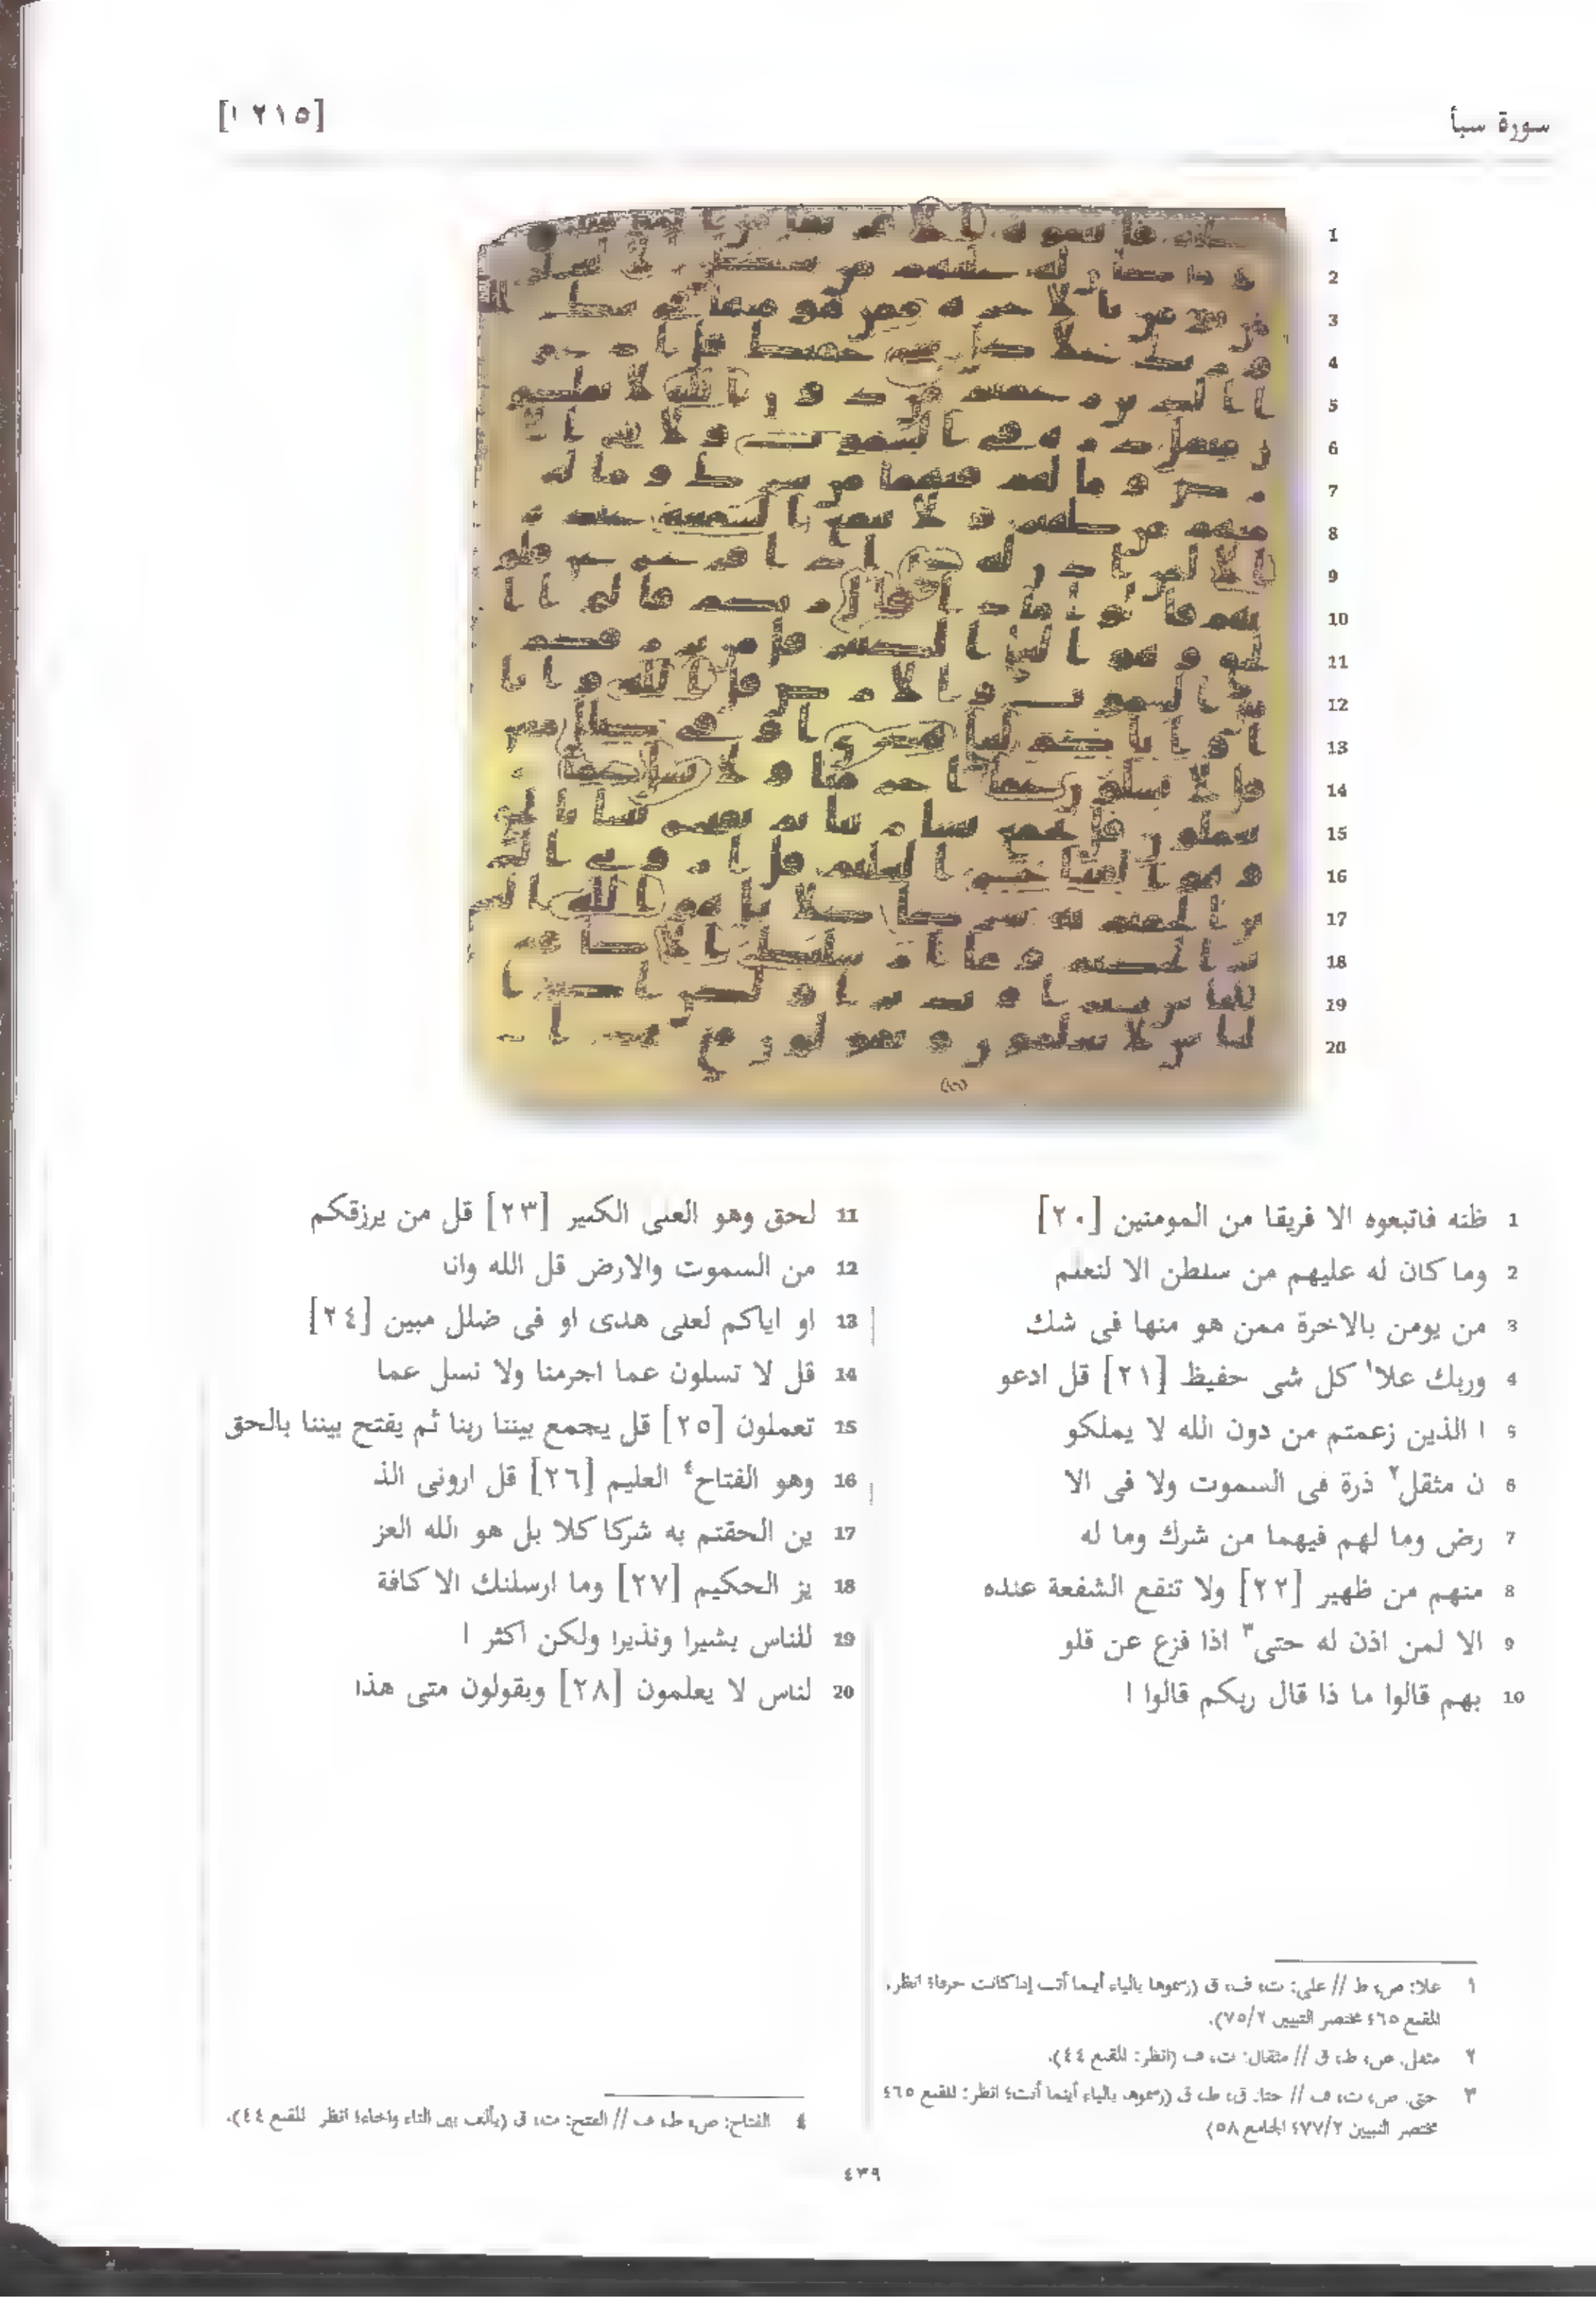 سورة سبأ
[٢١٥ ا]
1 ظنه فاتبعوه الا فريقا من المومنين [٢٠]
2 وما كان له عليهم من سلطن الا لنعلم
3 من يومن بالاخرة ممن هو منها فى شك
4 وربك علا١ كل شى حفيظ [٢١] قل ادعو
5 ا الذين زعمتم من دون الله لا يملكو
6 ن مثقل٢ ذرة فى السموت ولا فى الا
7 رض وما لهم فيهما من شرك وما له
8 منهم من ظهير [٢٢] ولا تنفع الشفعة عنده
9 الا لمن اذن له حتى٣ اذا فزع عن قلو
10 بهم قالوا ما ذا قال ربكم قالوا ا
11 لحق وهو العلى الكبير [٢٣] قل من يرزقكم
12 من السموت والارض قل الله وانا
13 او اياكم لعلى هدى او فى ضلل مبين [٢٤]
14 قل لا تسلون عما اجرمنا ولا نسل عما
15 تعملون [٢٥] قل يجمع بيننا ربنا ثم يفتح بيننا بالحق
16 وهو الفتاح٤ العليم [٢٦] قل ارونى الذ
17 ين الحقتم به شركا كلا بل هو الله العز
18 يز الحكيم [٢٧] وما ارسلنك الا كافة
19 للناس بشيرا ونذيرا ولكن اكثر ا
20 لناس لا يعلمون [٢٨] ويقولون متى هذا
١ علا: ص، ط // على: ت، ف، ق (رسموها بالياء أينما أتت إذا كانت حرفا؛ انظر:
المقنع ٤٦٥ مختصر التبيين ٧٥/٢).
٢ مثقل: ص، ط، ق // مثقال: ت، ف (انظر: المقنع ٤٤).
٣ حتى: ص، ت، ف // حتا: ق، ط، ق (رسموها بالياء أينما أتت؛ انظر: المقنع ٤٦٥
مختصر التبيين ٧٧/٢؛ الجامع ٥٨)
٤ الفتاح: ص، ط، ف // الفتح: ت، ق (بألف بين التاء والحاء؛ انظر المقنع ٤٤).
٤٣٩